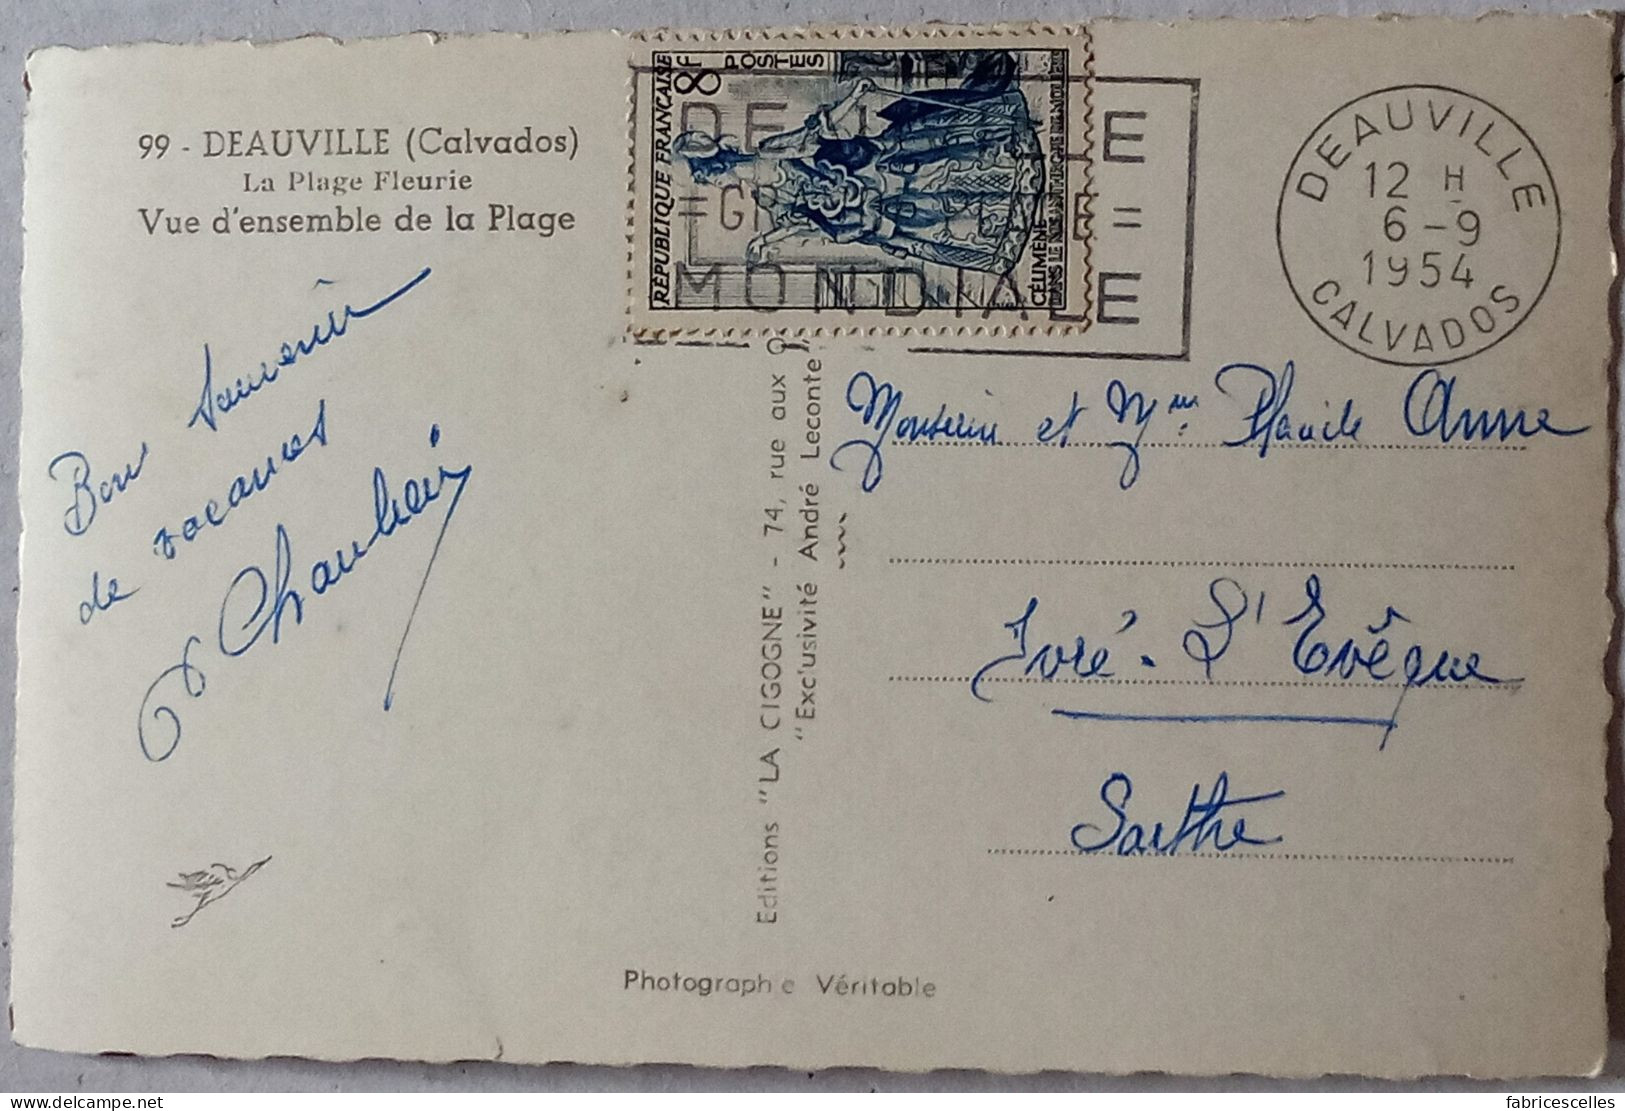 99 - DEAUVILLE (Calvados)
La Plage Fleurie
Vue d'ensemble de la Plage
Bon souvenir
de vacances
RÉPUBLIQUE FRANÇAISE
8F
POSTES
CÉLIMÈNE
DANS LE MISANTHROPE DE MOLIÈRE
MONDIALE
DEAUVILLE
12 H
6-9
1954
CALVADOS
Editions "LA CIGOGNE" - 74, rue aux
"Exc'usivité André Leconte"
Monsieur et Mme Placide Anne
Yvré-L'Evêque
Sarthe
Photographie Véritable
delcampe.net
fabricescelles